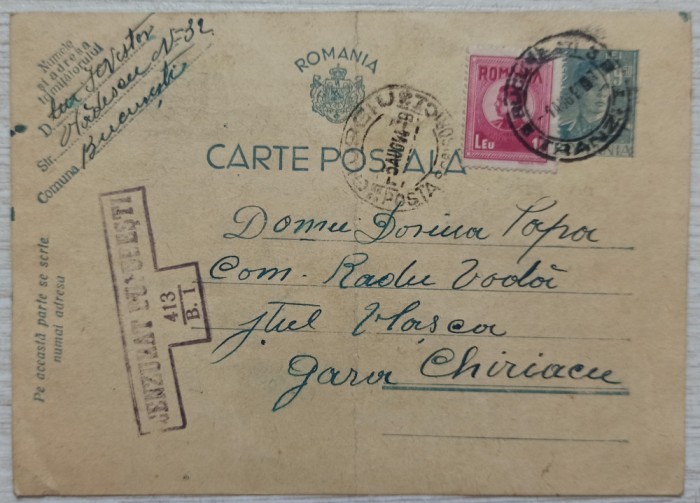 Numele
și adresa
trimițătorului
Str.
No 32
București
Comuna
ROMANIA
CARTE POSTALA
ROMANIA
1 LEU
TRANZIT
GIURGIU
POSTA
Domu Dorina Popa
Com. Radu Vodă
Jțul Vlașca
gara Chiriacu
CENZURAT BUCUREȘTI
413
B. I.
Pe această parte se scrie
numai adresa